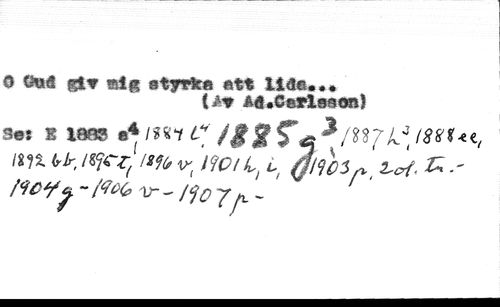 O Gud giv mig styrka att lida...
(Av Ad.Carlsson)
Se: E 1883 s⁴, 1884 t⁴, 1885 g³, 1887 h³, 1888 ee,
1892 bb, 1895 t, 1896 v, 1901 h, i, 1903 p, 2 ol. tr. -
1904 g - 1906 v - 1907 p -